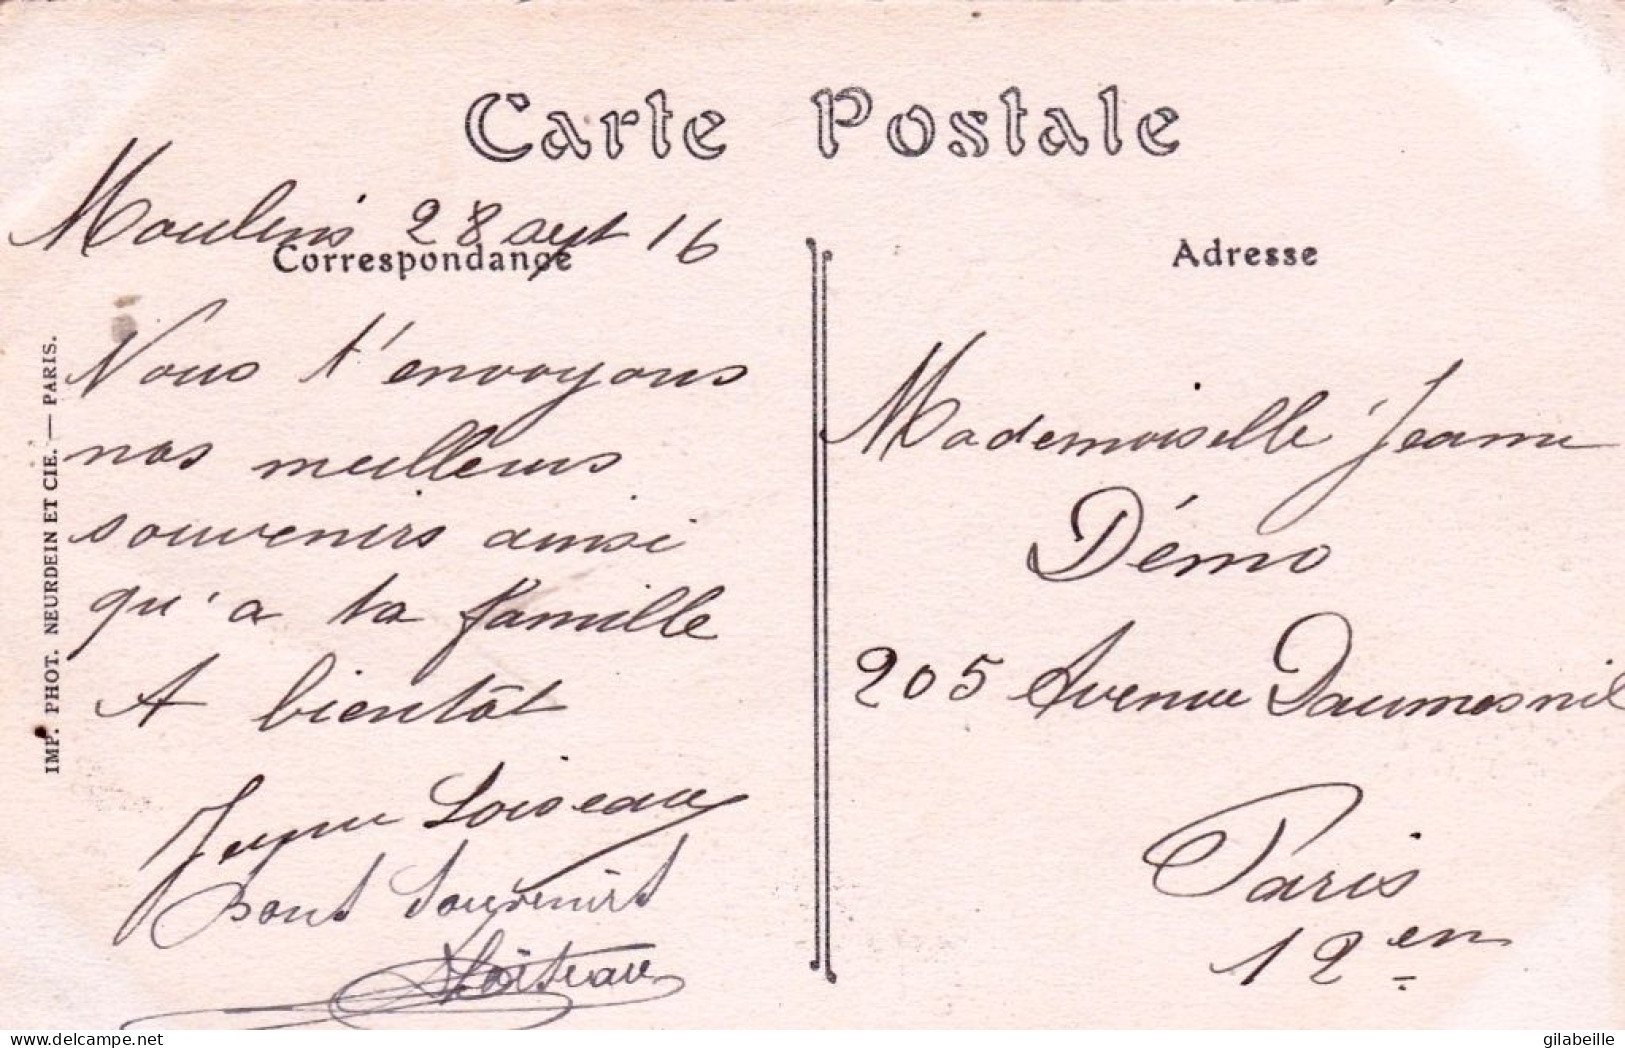 Carte Postale
Moulins 28 aout 16
Correspondance
Nous t'envoyons
nos meilleurs
souvenirs ainsi
qu'a ta famille
A bientôt
Loiseau
Bons Souvenirs
Loiseau
IMP. PHOT. NEURDEIN ET CIE. — PARIS.
Adresse
Mademoiselle Jeanne
Démo
205 Avenue Daumesnil
Paris
12en
delcampe.net
gilabeille